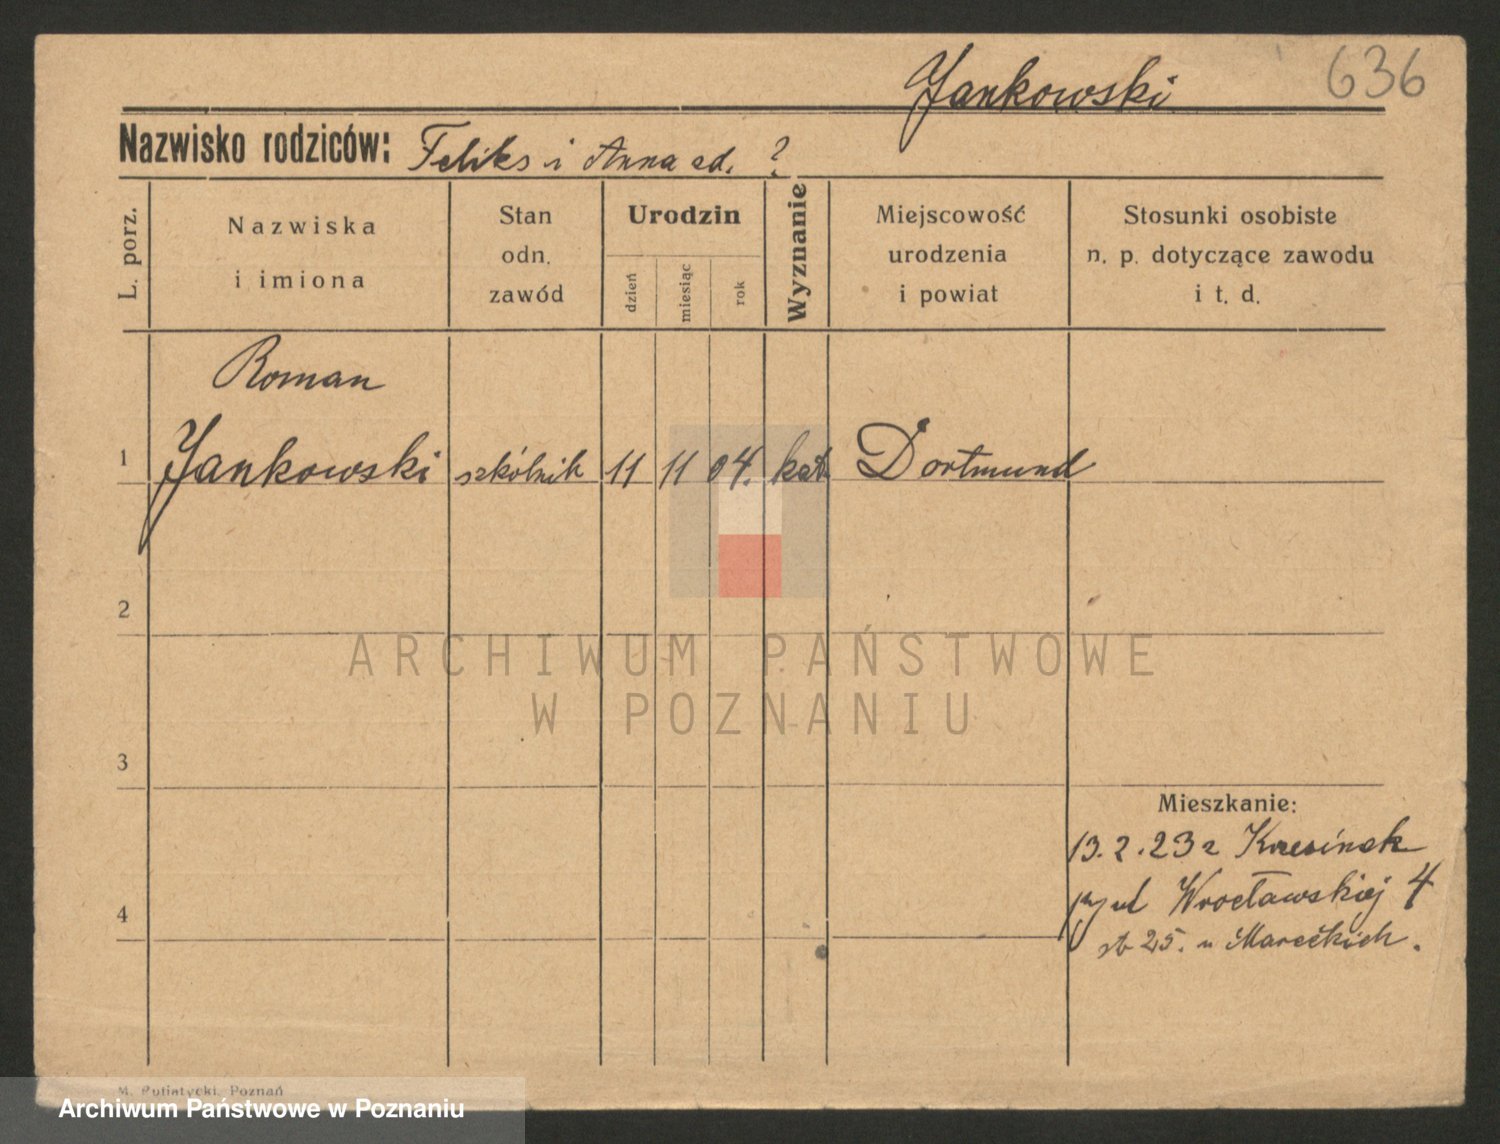 Jankowski 636
Nazwisko rodziców: Feliks i Anna ?
L. porz.
Nazwiska
i imiona
Stan
odn.
zawód
Urodzin
dzień
miesiąc
rok
Wyznanie
Miejscowość
urodzenia
i powiat
Stosunki osobiste
n. p. dotyczące zawodu
i t. d.
Roman
1 Jankowski szkólnik 11 11 04. kat Dortmund
2
3
Mieszkanie:
13.2.23 z
ul Wrocławskiej 4
4
25. u
M. Putiatycki, Poznań
ARCHIWUM PAŃSTWOWE
W POZNANIU
Archiwum Państwowe w Poznaniu